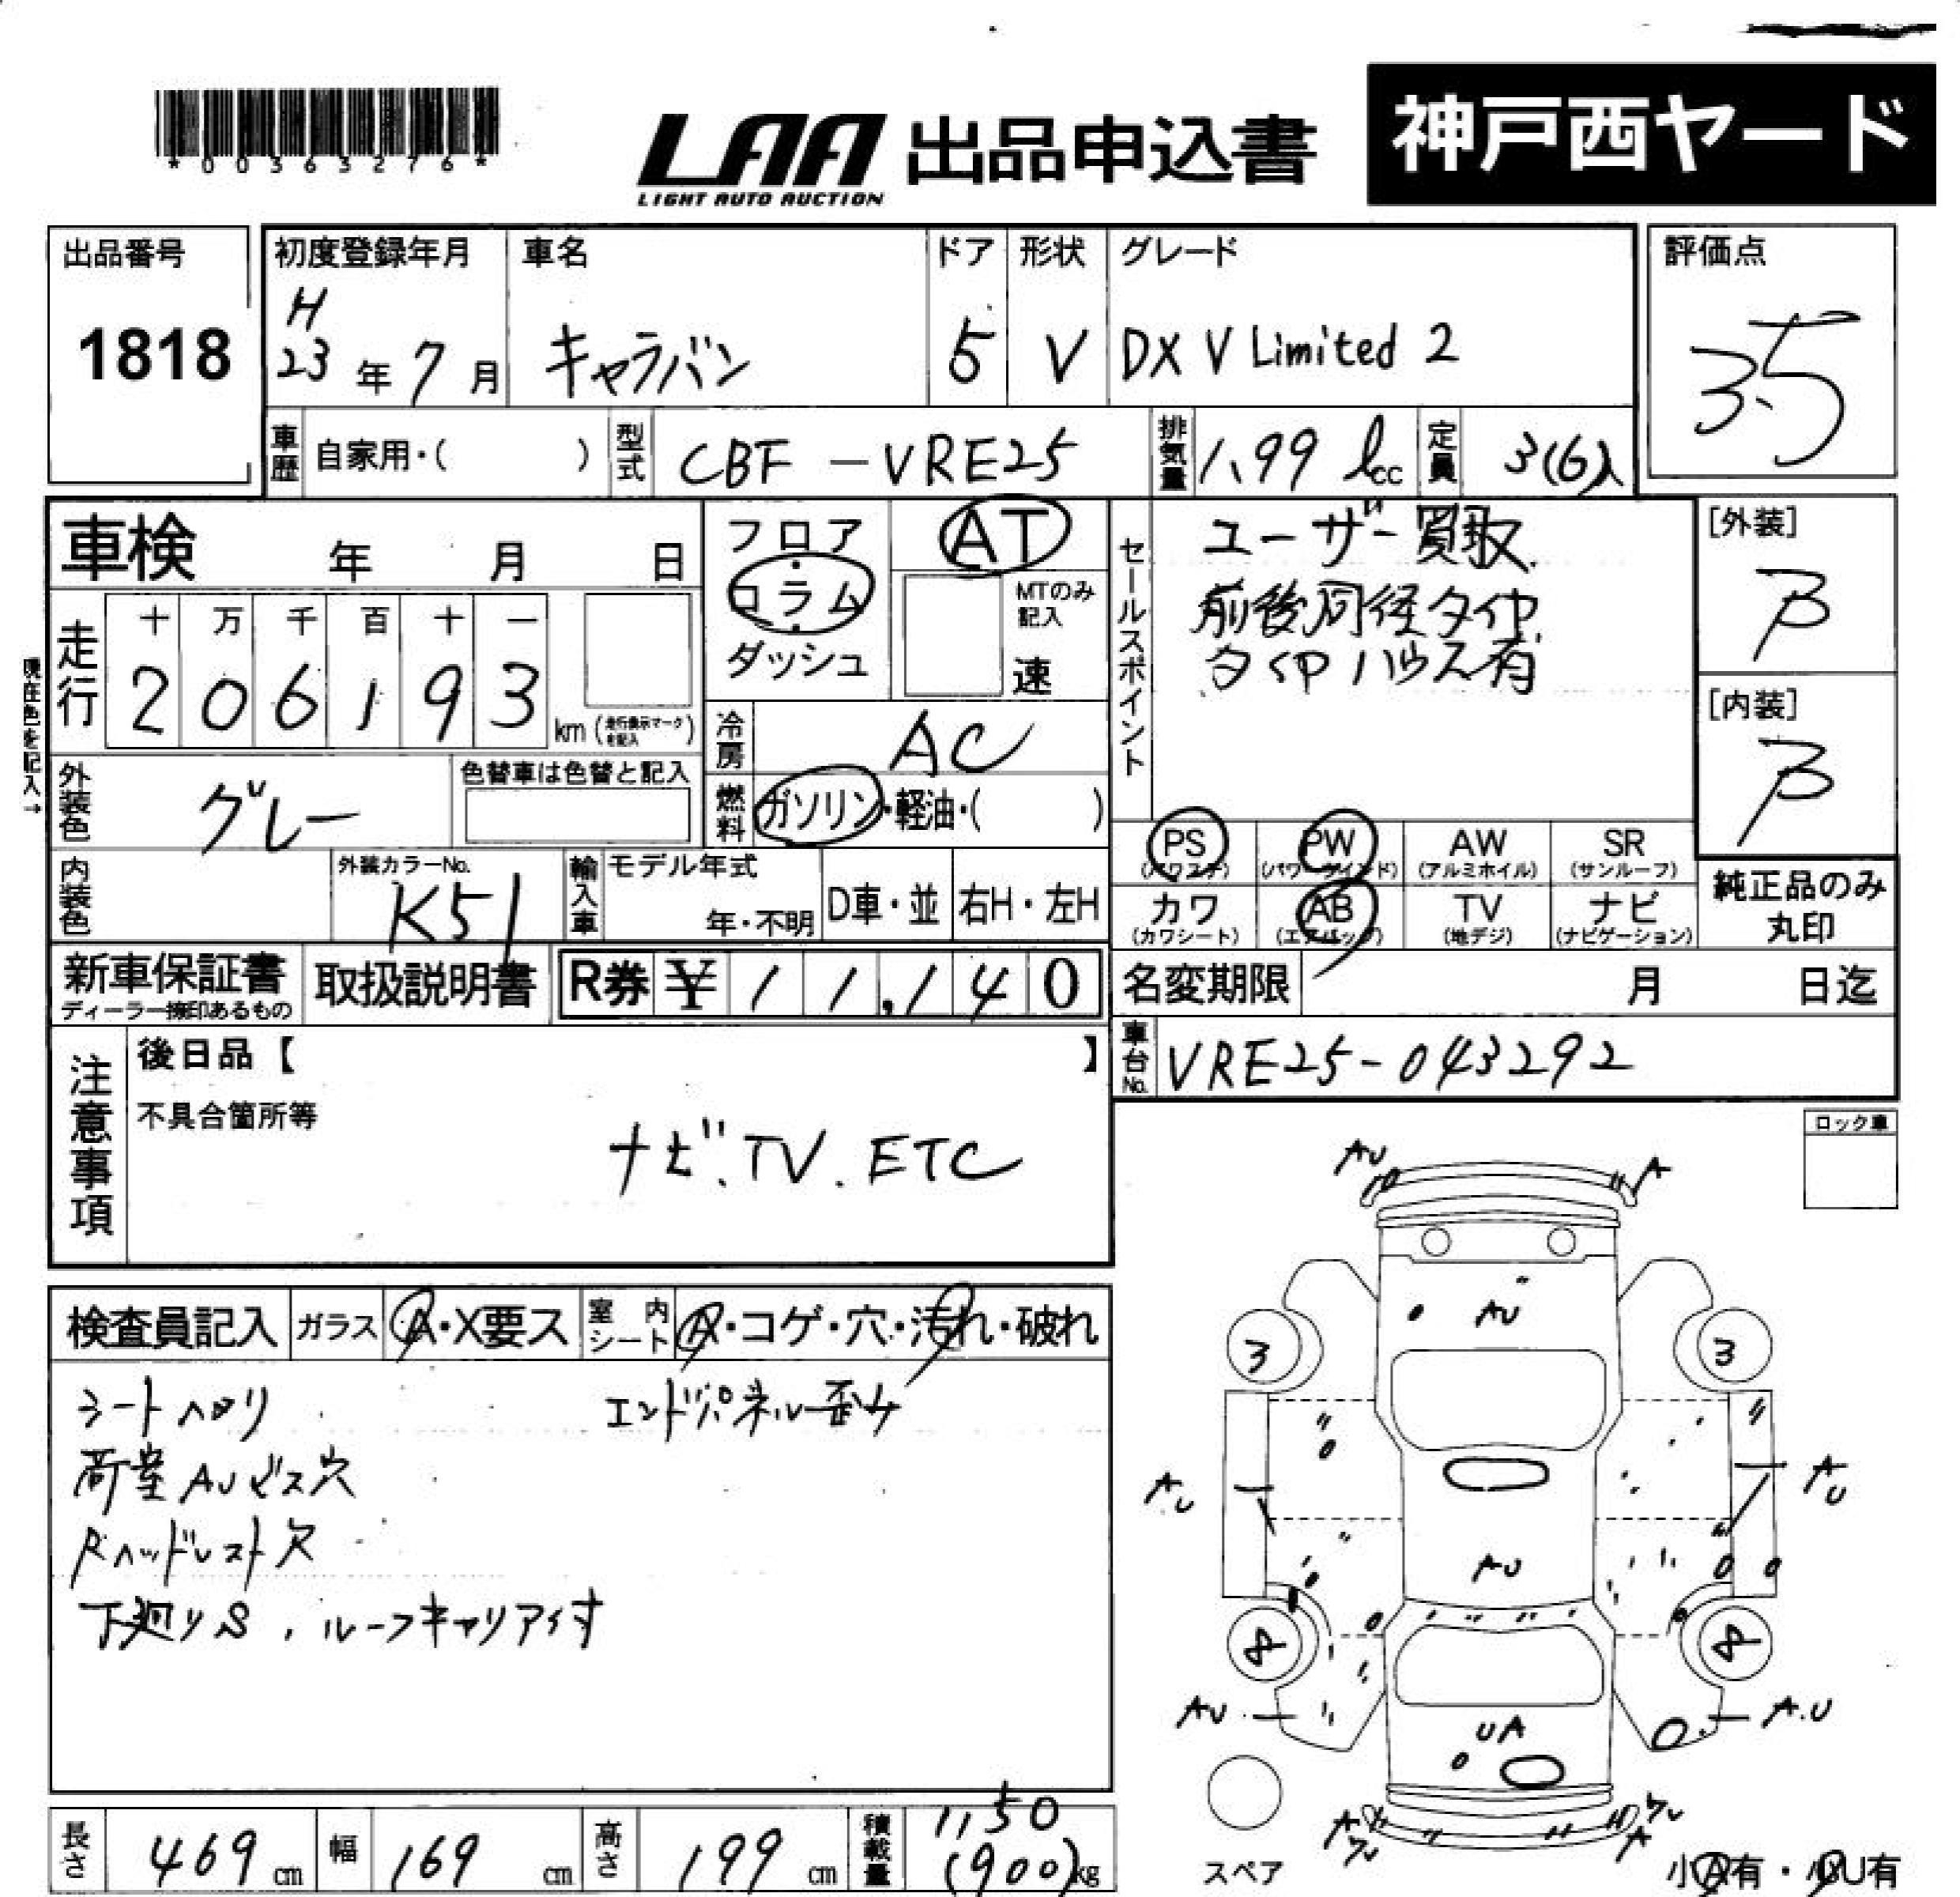 *00363276*
LAA 出品申込書
LIGHT AUTO AUCTION
神戸西ヤード
出品番号
1818
初度登録年月
H
23年7月
車名
キャラバン
ドア
5
形状
V
グレード
DX V Limited 2
評価点
3.5
車歴 自家用・( )
型式 CBF-VRE25
排気量 1.99 ℓ cc
定員 3(6)人
車検 年 月 日
現在色を記入→
走行
十 万 千 百 十 一
2 0 6 1 9 3
km (走行表示マークを記入)
フロア
・
コラム
・
ダッシュ
AT
MTのみ
記入
速
冷房 AC
燃料 ガソリン・軽油・( )
外装色 グレー
色替車は色替と記入
内装色
外装カラーNo.
K51
輸入車
モデル年式
年・不明
D車・並
右H・左H
セールスポイント
ユーザー買取
前後同径タイヤ
タイヤハウス有
[外装]
B
[内装]
B
PS
(パワステ)
PW
(パワーウインド)
AW
(アルミホイル)
SR
(サンルーフ)
カワ
(カワシート)
AB
(エアバック)
TV
(地デジ)
ナビ
(ナビゲーション)
純正品のみ
丸印
新車保証書
ディーラー捺印あるもの
取扱説明書
R券 ¥ 11,140
名変期限 月 日迄
車台No. VRE25-043292
注意事項
後日品【 】
不具合箇所等
ナビ.TV.ETC
ロック車
検査員記入
ガラス A・X要ス
室内シート A・コゲ・穴・汚れ・破れ
シートヘタリ
エンドパネル歪み
荷室AUビス穴
Rヘッドレスト欠
下廻りS、ルーフキャリアイす
AU
A
AU
3
3
AU
AU
AU
8
8
AU
A.U
UA
A
A
スペア
小A有・小U有
長さ 469 cm
幅 169 cm
高さ 199 cm
積載量 1,150
(900)kg